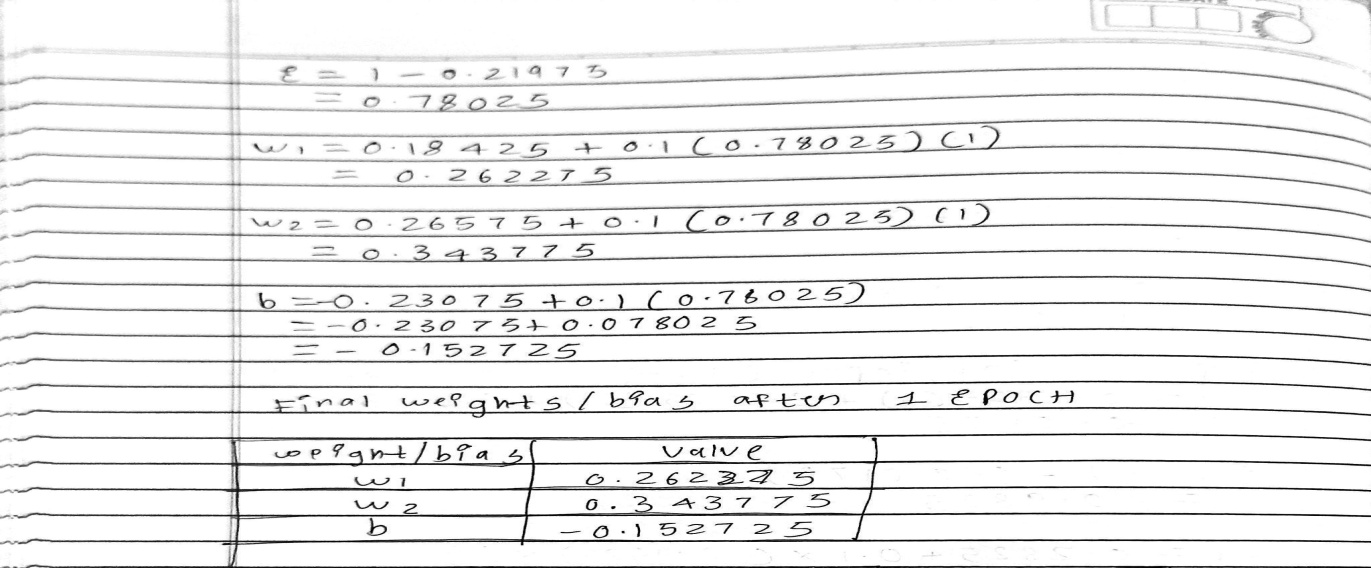 ε = 1 - 0.21975
= 0.78025
w1 = 0.18425 + 0.1 (0.78025) (1)
= 0.262275
w2 = 0.26575 + 0.1 (0.78025) (1)
= 0.343775
b = -0.23075 + 0.1 (0.78025)
= -0.23075 + 0.078025
= -0.152725
Final weights / bias after 1 EPOCH
weight/bias value
w1 0.262275
w2 0.343775
b -0.152725